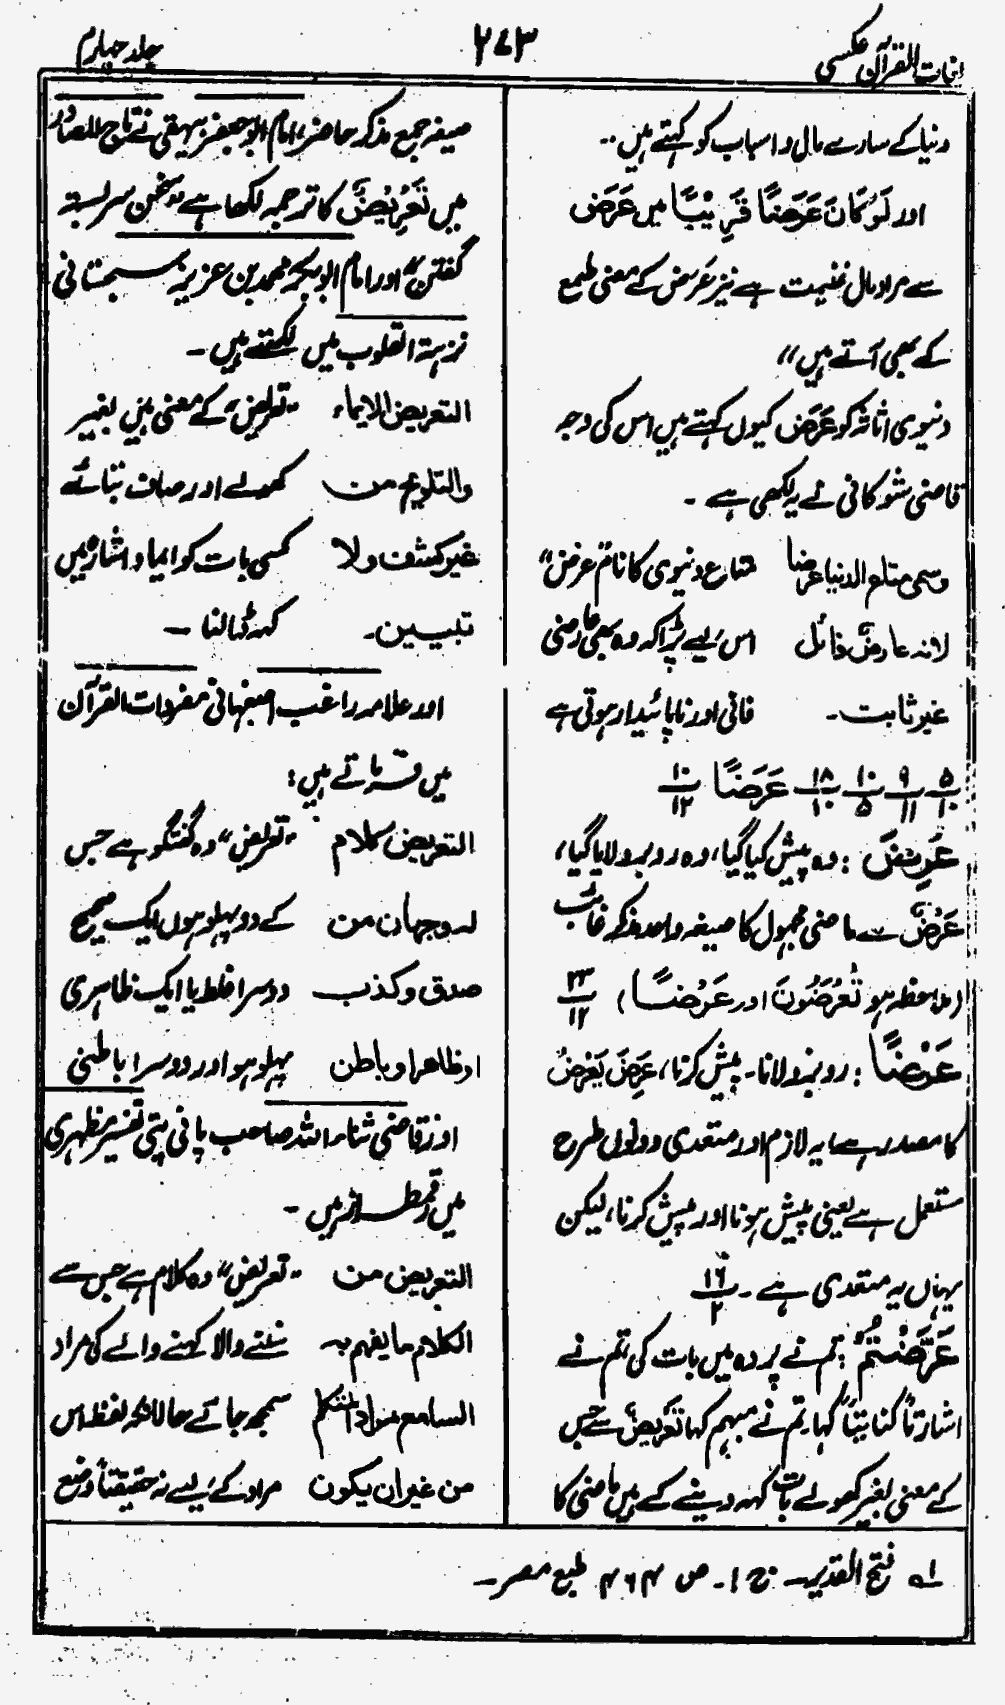 لغات القرآن عکسی
۲۷۳
جلد چہارم
دنیا کے سارے مال و اسباب کو کہتے ہیں۔۔
اور لَوْ كَانَ عَرَضًا قَرِيْبًا میں عَرَض
سے مراد مال غنیمت ہے نیز عَرض کے معنی طمع
کے بھی آتے ہیں"
دنیوی اثاثہ کو عَرَض کیوں کہتے ہیں اس کی وجہ
قاضی شوکانی نے یہ لکھی ہے ۔
وسمی متاع الدنیا عرضا متاع دنیوی کا نام عرض"
لانه عارض زائل اس لیے پڑا کہ وہ بھی عارضی
غیر ثابت۔ فانی اور ناپائیدار ہوتی ہے
۵/۱۰ ۹/۱۱ ۱۰/۵ ۱۸/۱۰ عَرَضًا ۱۰/۱۲
عُرِضَ : وہ پیش کیا گیا، وہ روبرو لایا گیا،
عَرْضٌ سے ماضی مجہول کا صیغہ واحد مذکر غائب
(ملاحظہ ہو تُعْرَضُونَ اور عَرْضًا) ۲۳/۱۲
عَرْضًا : روبرو لانا۔ پیش کرنا، عَرَضَ يَعْرِضُ
کا مصدر ہے، یہ لازم اور متعدی دونوں طرح
مستعمل ہے یعنی پیش ہونا اور پیش کرنا، لیکن
یہاں یہ متعدی ہے ۔ ۱۶/۲
عَرَّضْتُمْ : تم نے پردہ میں بات کی تم نے
اشارتاً کنایتاً کہا۔ تم نے مبہم کہا تَعْرِیْضٌ سے جس
کے معنی بغیر کھولے بات کہہ دینے کے ہیں ماضی کا
صیغہ جمع مذکر حاضر، امام ابو جعفر بیہقی نے تاج المصادر
میں تَعْرِيْضٌ کا ترجمہ لکھا ہے "سخن سر بستہ
گفتن" اور امام ابو بکر محمد بن عزیز سجستانی
نزہتہ القلوب میں لکھتے ہیں ۔
التعریض الایماء "تعریض" کے معنی ہیں بغیر
والتلویح من کھولے اور صاف بتائے
غیر کشف ولا کسی بات کو ایما و اشارہ میں
تبیین۔ کہہ ڈالنا ۔
اور علامہ راغب اصفہانی مفردات القرآن
میں فرماتے ہیں :
التعریض کلام "تعریض" وہ گفتگو ہے جس
له وجهان من کے دو پہلو ہوں ایک صحیح
صدق وكذب دوسرا غلط یا ایک ظاہری
او ظاهر او باطن پہلو ہو اور دوسرا باطنی
اور قاضی ثناء اللہ صاحب پانی پتی تفسیر مظہری
میں رقمطراز ہیں ۔
التعریض من "تعریض" وہ کلام ہے جس سے
الکلام ما یفهم به سننے والا کہنے والے کی مراد
السامع مراد المتکلم سمجھ جائے حالانکہ لفظ اس
من غیر ان یکون مراد کے لیے نہ حقیقتاً وضع
لہ فتح القدیر۔ ج ۱۔ ص ۴۶۴ طبع مصر ۔